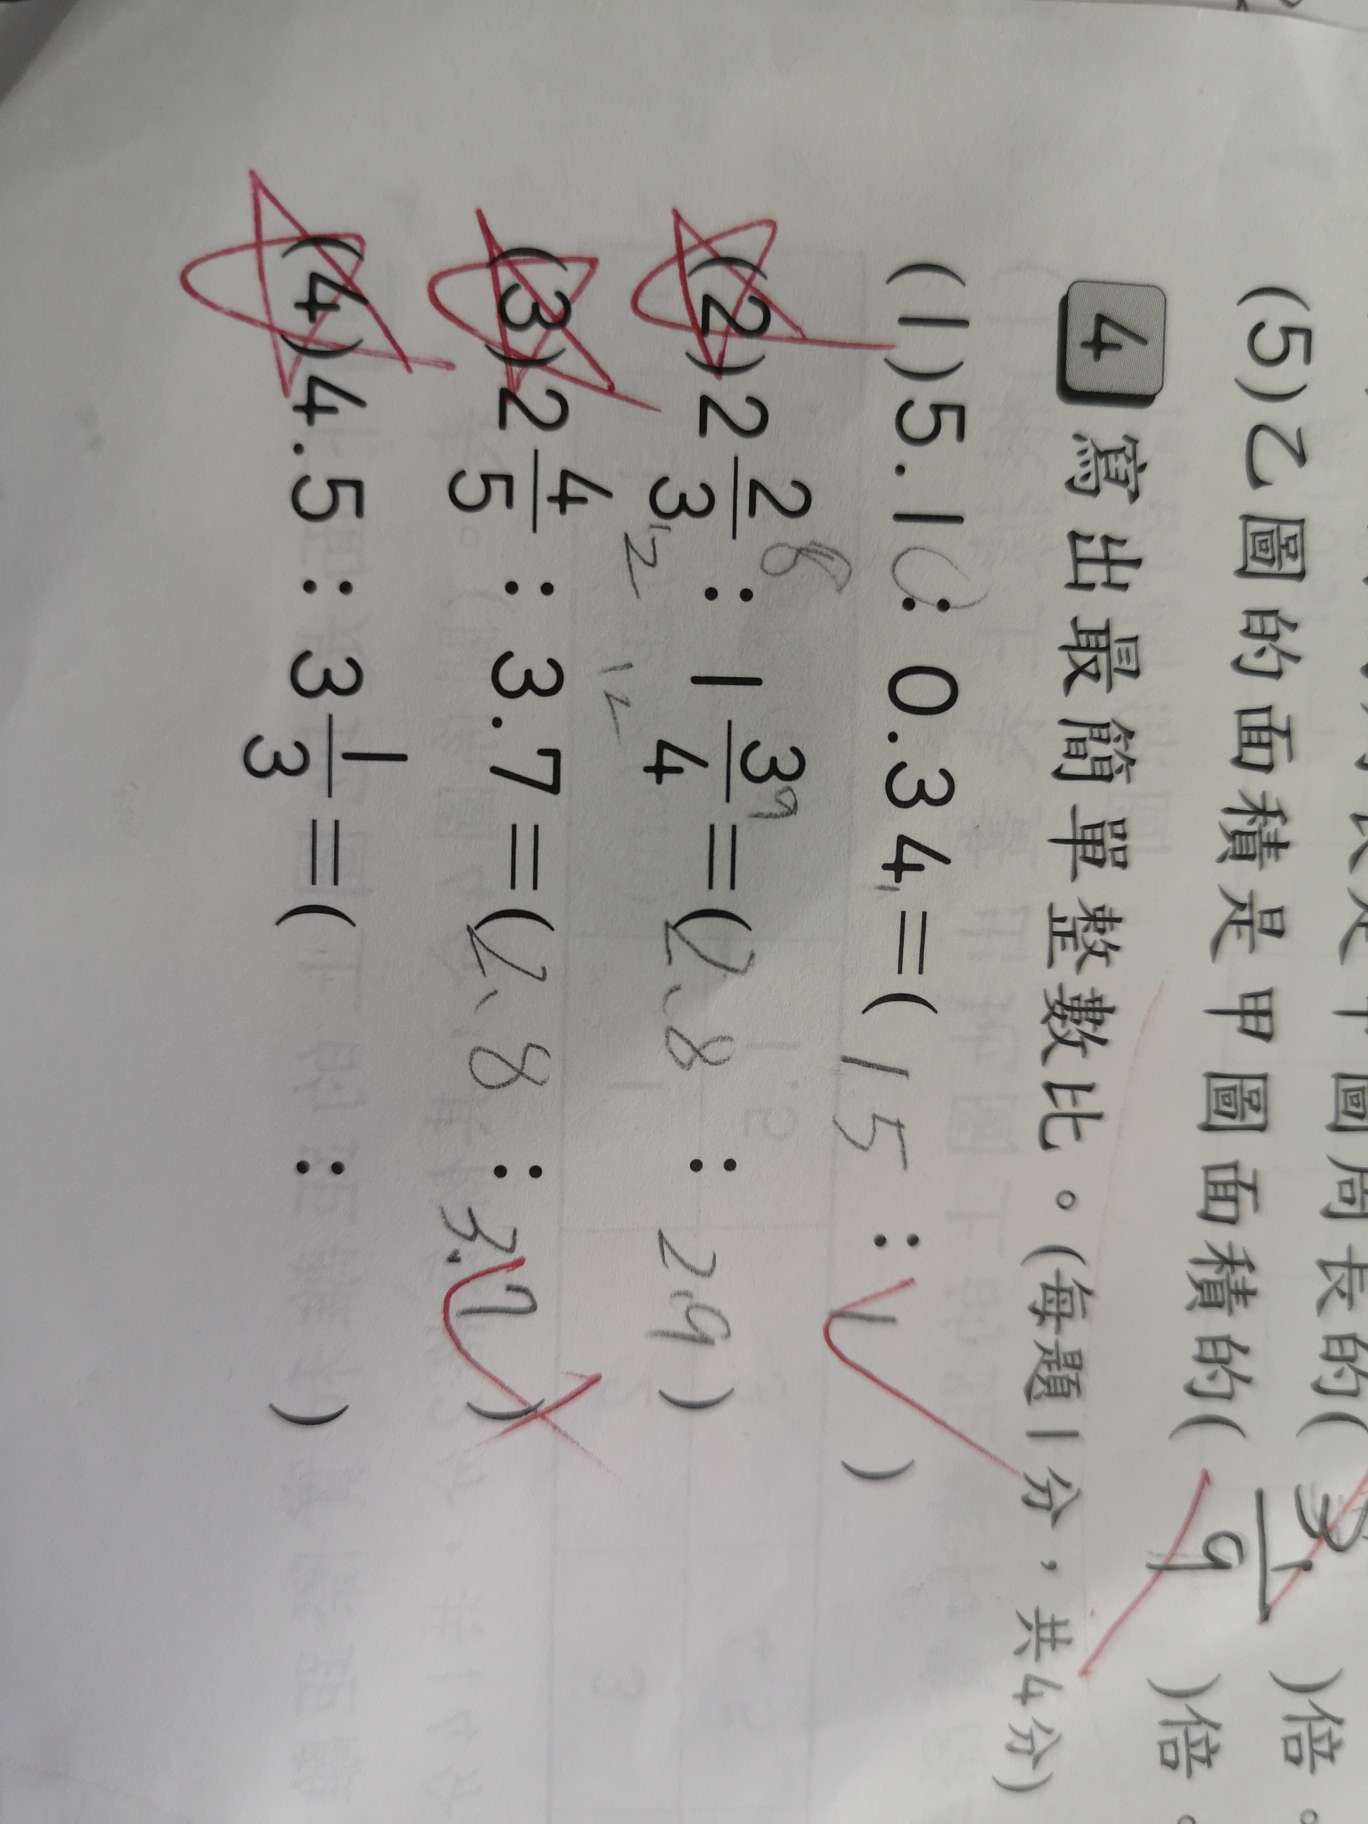 (5)乙圖的面積是甲圖面積的( 1/9 )倍。
4 寫出最簡單整數比。(每題1分，共4分)
(1)5.10：0.34=( 15：1 )
(2)2 2/3：1 3/4=( 2.8：29 )
8 9
12 12
(3)2 4/5：3.7=( 2.8：3.7 )
(4)4.5：3 1/3=( ： )